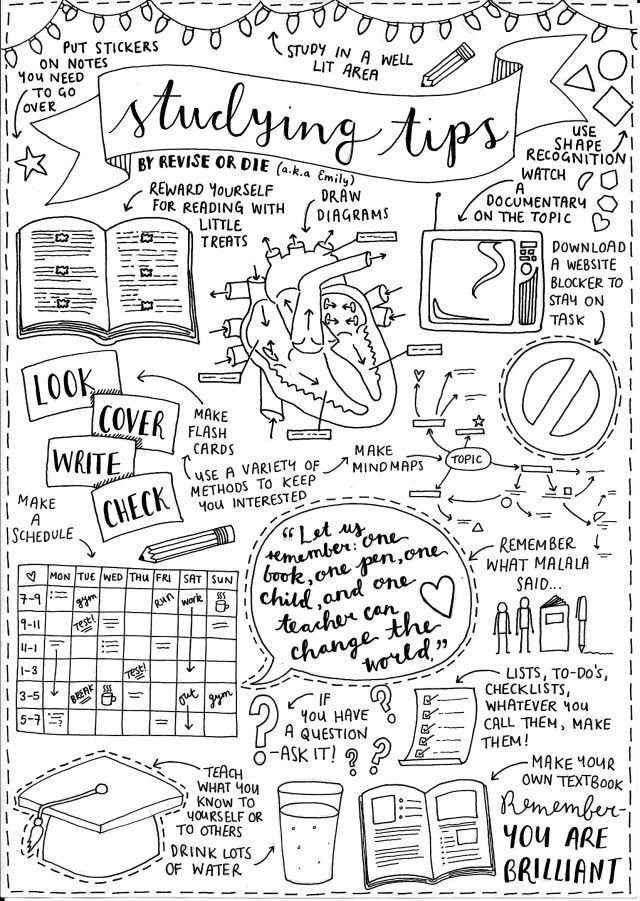 PUT STICKERS
ON NOTES
YOU NEED
TO GO
OVER
STUDY IN A WELL
LIT AREA
studying tips
BY REVISE OR DIE (a.k.a Emily)
USE
SHAPE
RECOGNITION
REWARD YOURSELF
FOR READING WITH
LITTLE
TREATS
DRAW
DIAGRAMS
WATCH
A
DOCUMENTARY
ON THE TOPIC
DOWNLOAD
A WEBSITE
BLOCKER TO
STAY ON
TASK
LOOK
COVER
WRITE
CHECK
MAKE
FLASH
CARDS
USE A VARIETY OF
METHODS TO KEEP
YOU INTERESTED
MAKE
MINDMAPS
TOPIC
MAKE
A
SCHEDULE
MON TUE WED THU FRI SAT SUN
7-9 gym run work
9-11 Test!
11-1
1-3 Test!
3-5 BREAK out gym
5-7 ?
"Let us
remember: one
book, one pen, one
child, and one
teacher can
change the
world."
REMEMBER
WHAT MALALA
SAID...
LISTS, TO-DO'S,
CHECKLISTS,
WHATEVER YOU
CALL THEM, MAKE
THEM!
IF
YOU HAVE
A QUESTION
-ASK IT!
? ? ? ?
TEACH
WHAT YOU
KNOW TO
YOURSELF OR
TO OTHERS
DRINK LOTS
OF WATER
MAKE YOUR
OWN TEXTBOOK
Remember-
YOU ARE
BRILLIANT